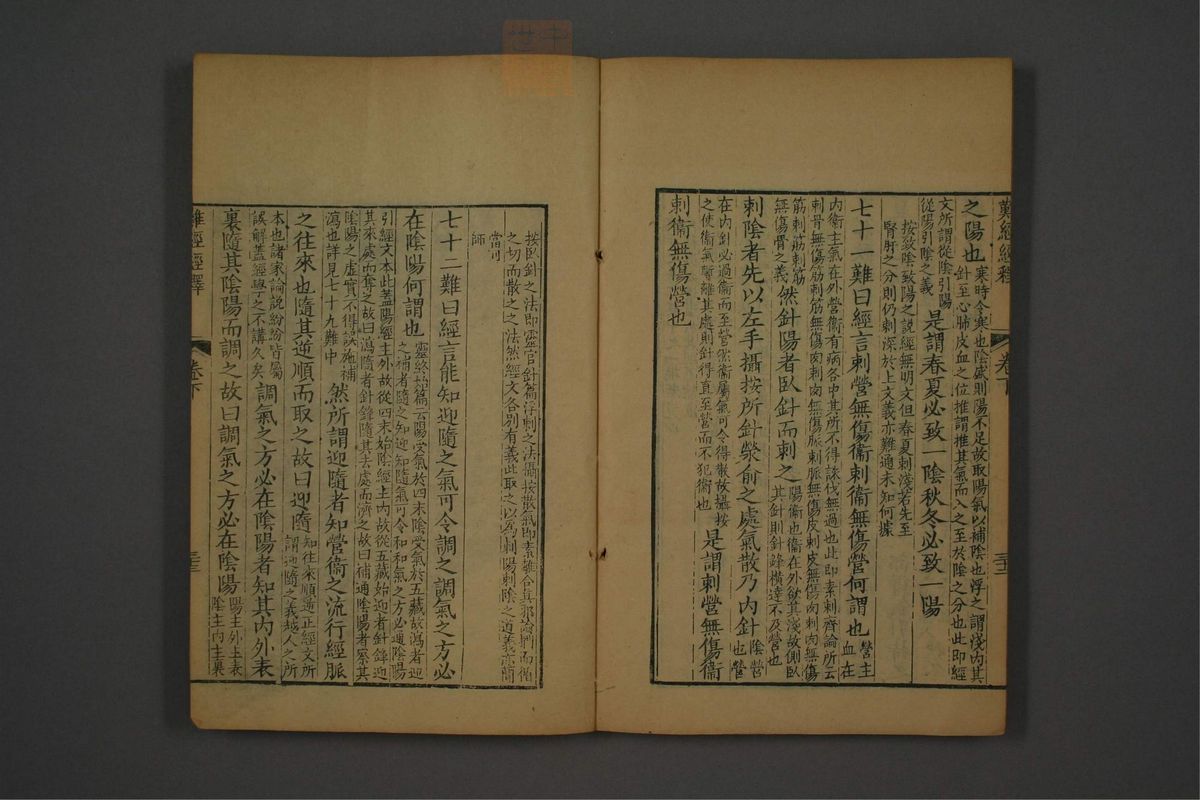 難經經釋 卷下
之陽也
寒時令寒也陰處則陽不足故取陽氣以補陰也浮之謂淺內其
針至心肺皮血之位推謂推其氣而入之至於陰之分也此即經
文所謂從陰引陽
從陽引陰之義
是謂春夏必致一陰秋冬必致一陽
按致陰致陽之說經無明文但春夏刺淺若先至
腎肝之分則仍刺深於上文義亦難通未知何據
七十一難曰經言刺營無傷衞刺衞無傷營何謂也
營主
血在
內衞主氣在外營衞有病各中其所不得誅伐無過也此即素刺齊論所云
刺骨無傷筋刺筋無傷肉刺肉無傷脈刺脈無傷皮刺皮無傷肉刺肉無傷
筋刺筋
無傷骨之義
然針陽者臥針而刺之
陽衞也衞在外欲其淺故側臥
其針則針鋒橫達不及營也
刺陰者先以左手攝按所針滎俞之處氣散乃內針
陰營
也營
在內針必過衞而至營然衞屬氣可令得散故攝按
之使衞氣暫離其處則針得直至營而不犯衞也
是謂刺營無傷衞
刺衞無傷營也
按臥針之法即靈官針篇浮刺之法攝按散氣即素離合真邪論捫而循
之切而散之之法然經文各別有義此取之以為刺陽刺陰之道義簡
當可
師
七十二難曰經言能知迎隨之氣可令調之調氣之方必
在陰陽何謂也
靈終始篇云陽受氣於四末陰受氣於五藏故瀉者迎
之補者隨之知迎知隨氣可令和和氣之方必通陰陽
引經文本此蓋陽經主外故從四末始陰經主內故從五藏始迎者針鋒迎
其來處而奪之故曰瀉隨者針鋒隨其去處而濟之故曰補通陰陽者察其
陰陽之虛實不得誤施補
瀉也詳見七十九難中
然所謂迎隨者知營衞之流行經脈
之往來也隨其逆順而取之故曰迎隨
知往來順逆正經文所
謂迎隨之義越人之所
本也諸家論說紛紛皆屬
誤解蓋經學之不講久矣
調氣之方必在陰陽者知其內外表
裏隨其陰陽而調之故曰調氣之方必在陰陽
陽主外主表
陰主內主裏
難經經釋 卷下